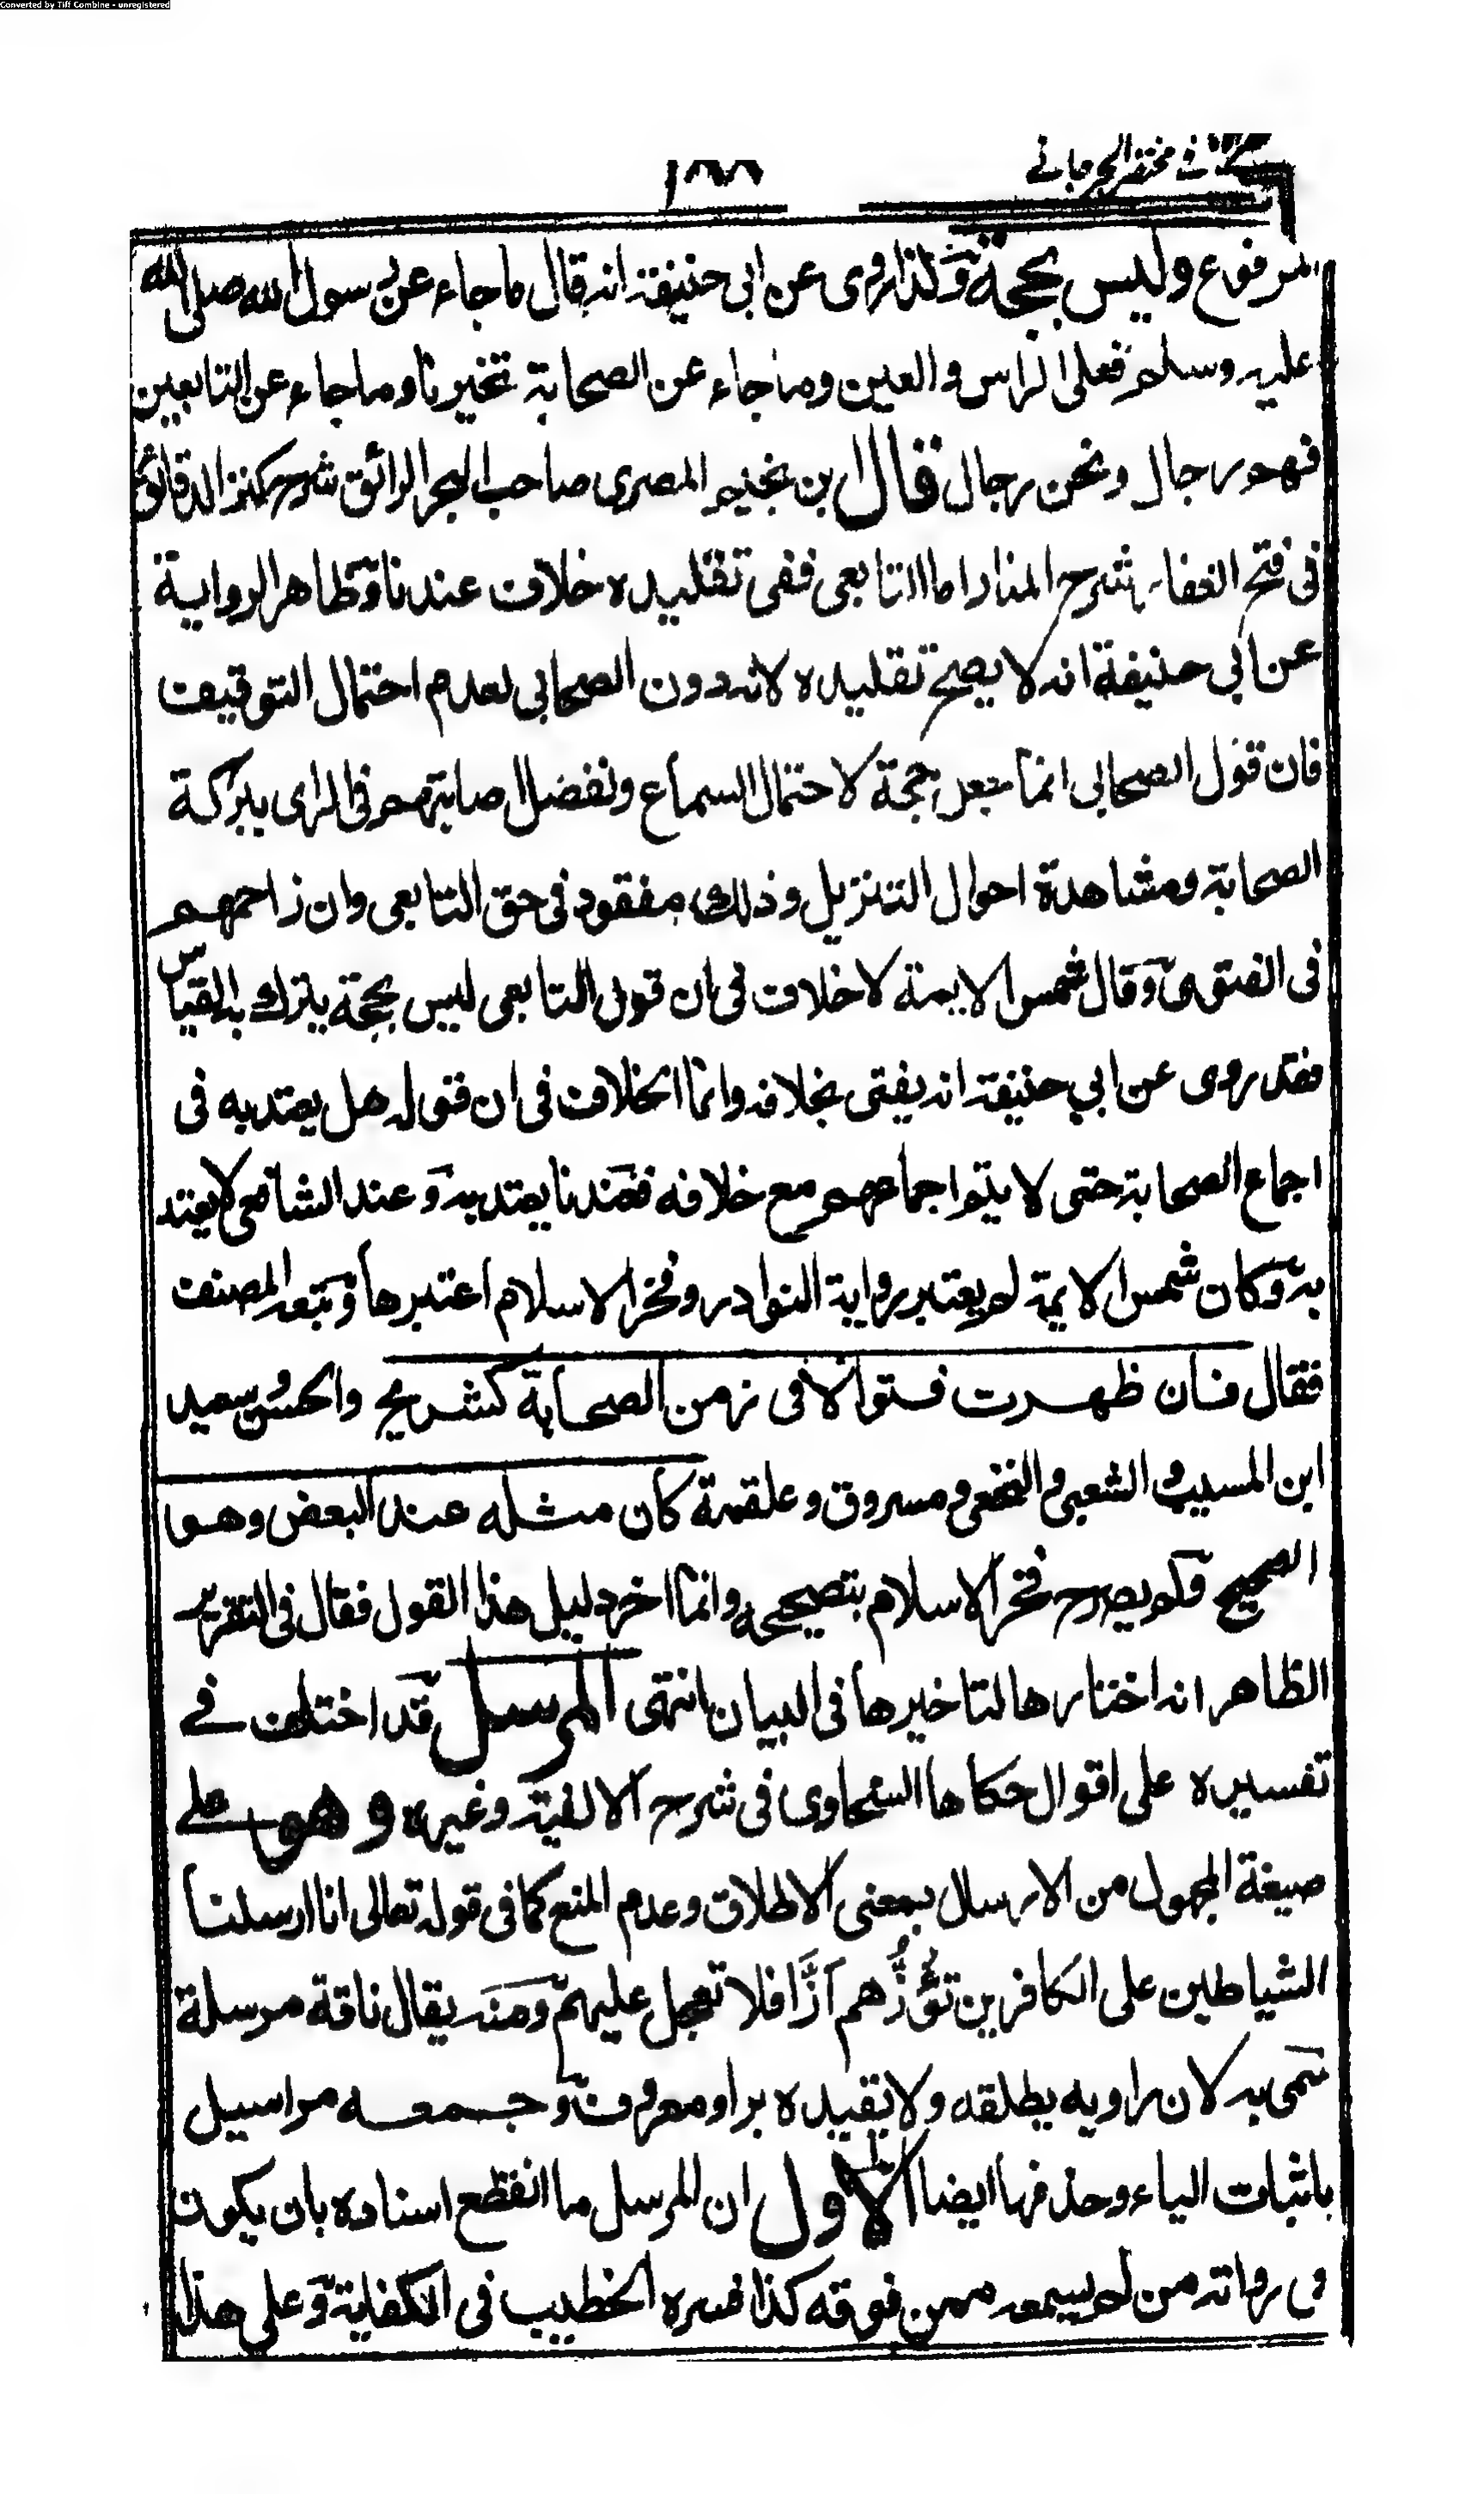 Converted by Tiff Combine - unregistered
في مختصر الجرجاني
١٨٨
المرفوع وليس بحجة وكذا روى عن ابى حنيفة انه قال ما جاء عن رسول الله صلى الله
عليه وسلم فعلى الراس والعين وما جاء عن الصحابة تخيرنا وما جاء عن التابعين
فهم رجال ونحن رجال قال ابن نجيم المصرى صاحب البحر الرائق شرح كنز الدقائق
فى فتح الغفار شرح المنار اما التابعى ففى تقليده خلاف عندنا وظاهر الرواية
عن ابى حنيفة انه لا يصح تقليده لانه دون الصحابى لعدم احتمال التوقيف
فان قول الصحابى انما جعل حجة لاحتمال السماع ولفضل اصابتهم فى الراى ببركة
الصحابة ومشاهدة احوال التنزيل وذلك مفقود فى حق التابعى وان زاحمهم
فى الفتوى وقال شمس الايمة لا خلاف فى ان قول التابعى ليس بحجة يترك به القياس
فقد روى عن ابي حنيفة انه يفتى بخلافه وانما الخلاف فى ان قوله هل يعتد به فى
اجماع الصحابة حتى لا يتم اجماعهم مع خلافه فعندنا يعتد به وعند الشافعى لا يعتد
به وكان شمس الايمة لم يعتبر رواية النوادر وفخر الاسلام اعتبرها وتبعه المصنف
فقال فان ظهرت فتواه فى زمن الصحابة كشريح والحسن وسعيد
ابن المسيب والشعبى والنخعى ومسروق وعلقمة كان مثله عند البعض وهو
الصحيح ولم يصرح فخر الاسلام بتصحيحه وانما اخر دليل هذا القول فقال فى التقرير
الظاهر انه اختارها لتاخيرها فى البيان انتهى المرسل قد اختلف في
تفسيره على اقوال حكاها السخاوى فى شرح الالفية وغيره وهو على
صيغة المجهول من الارسال بمعنى الاطلاق وعدم المنع كما فى قوله تعالى انا ارسلنا
الشياطين على الكافرين تؤزُّهم ازًّا فلا تعجل عليهم ومنه يقال ناقة مرسلة
سمى به لان راويه يطلقه ولا يقيده براو معروف وجمعه مراسيل
باثبات الياء وحذفها ايضا الاول ان المرسل ما انقطع اسناده بان يكون
فى رواته من لم يسمعه ممن فوقه كذا فسره الخطيب فى الكفاية وعلى هذا